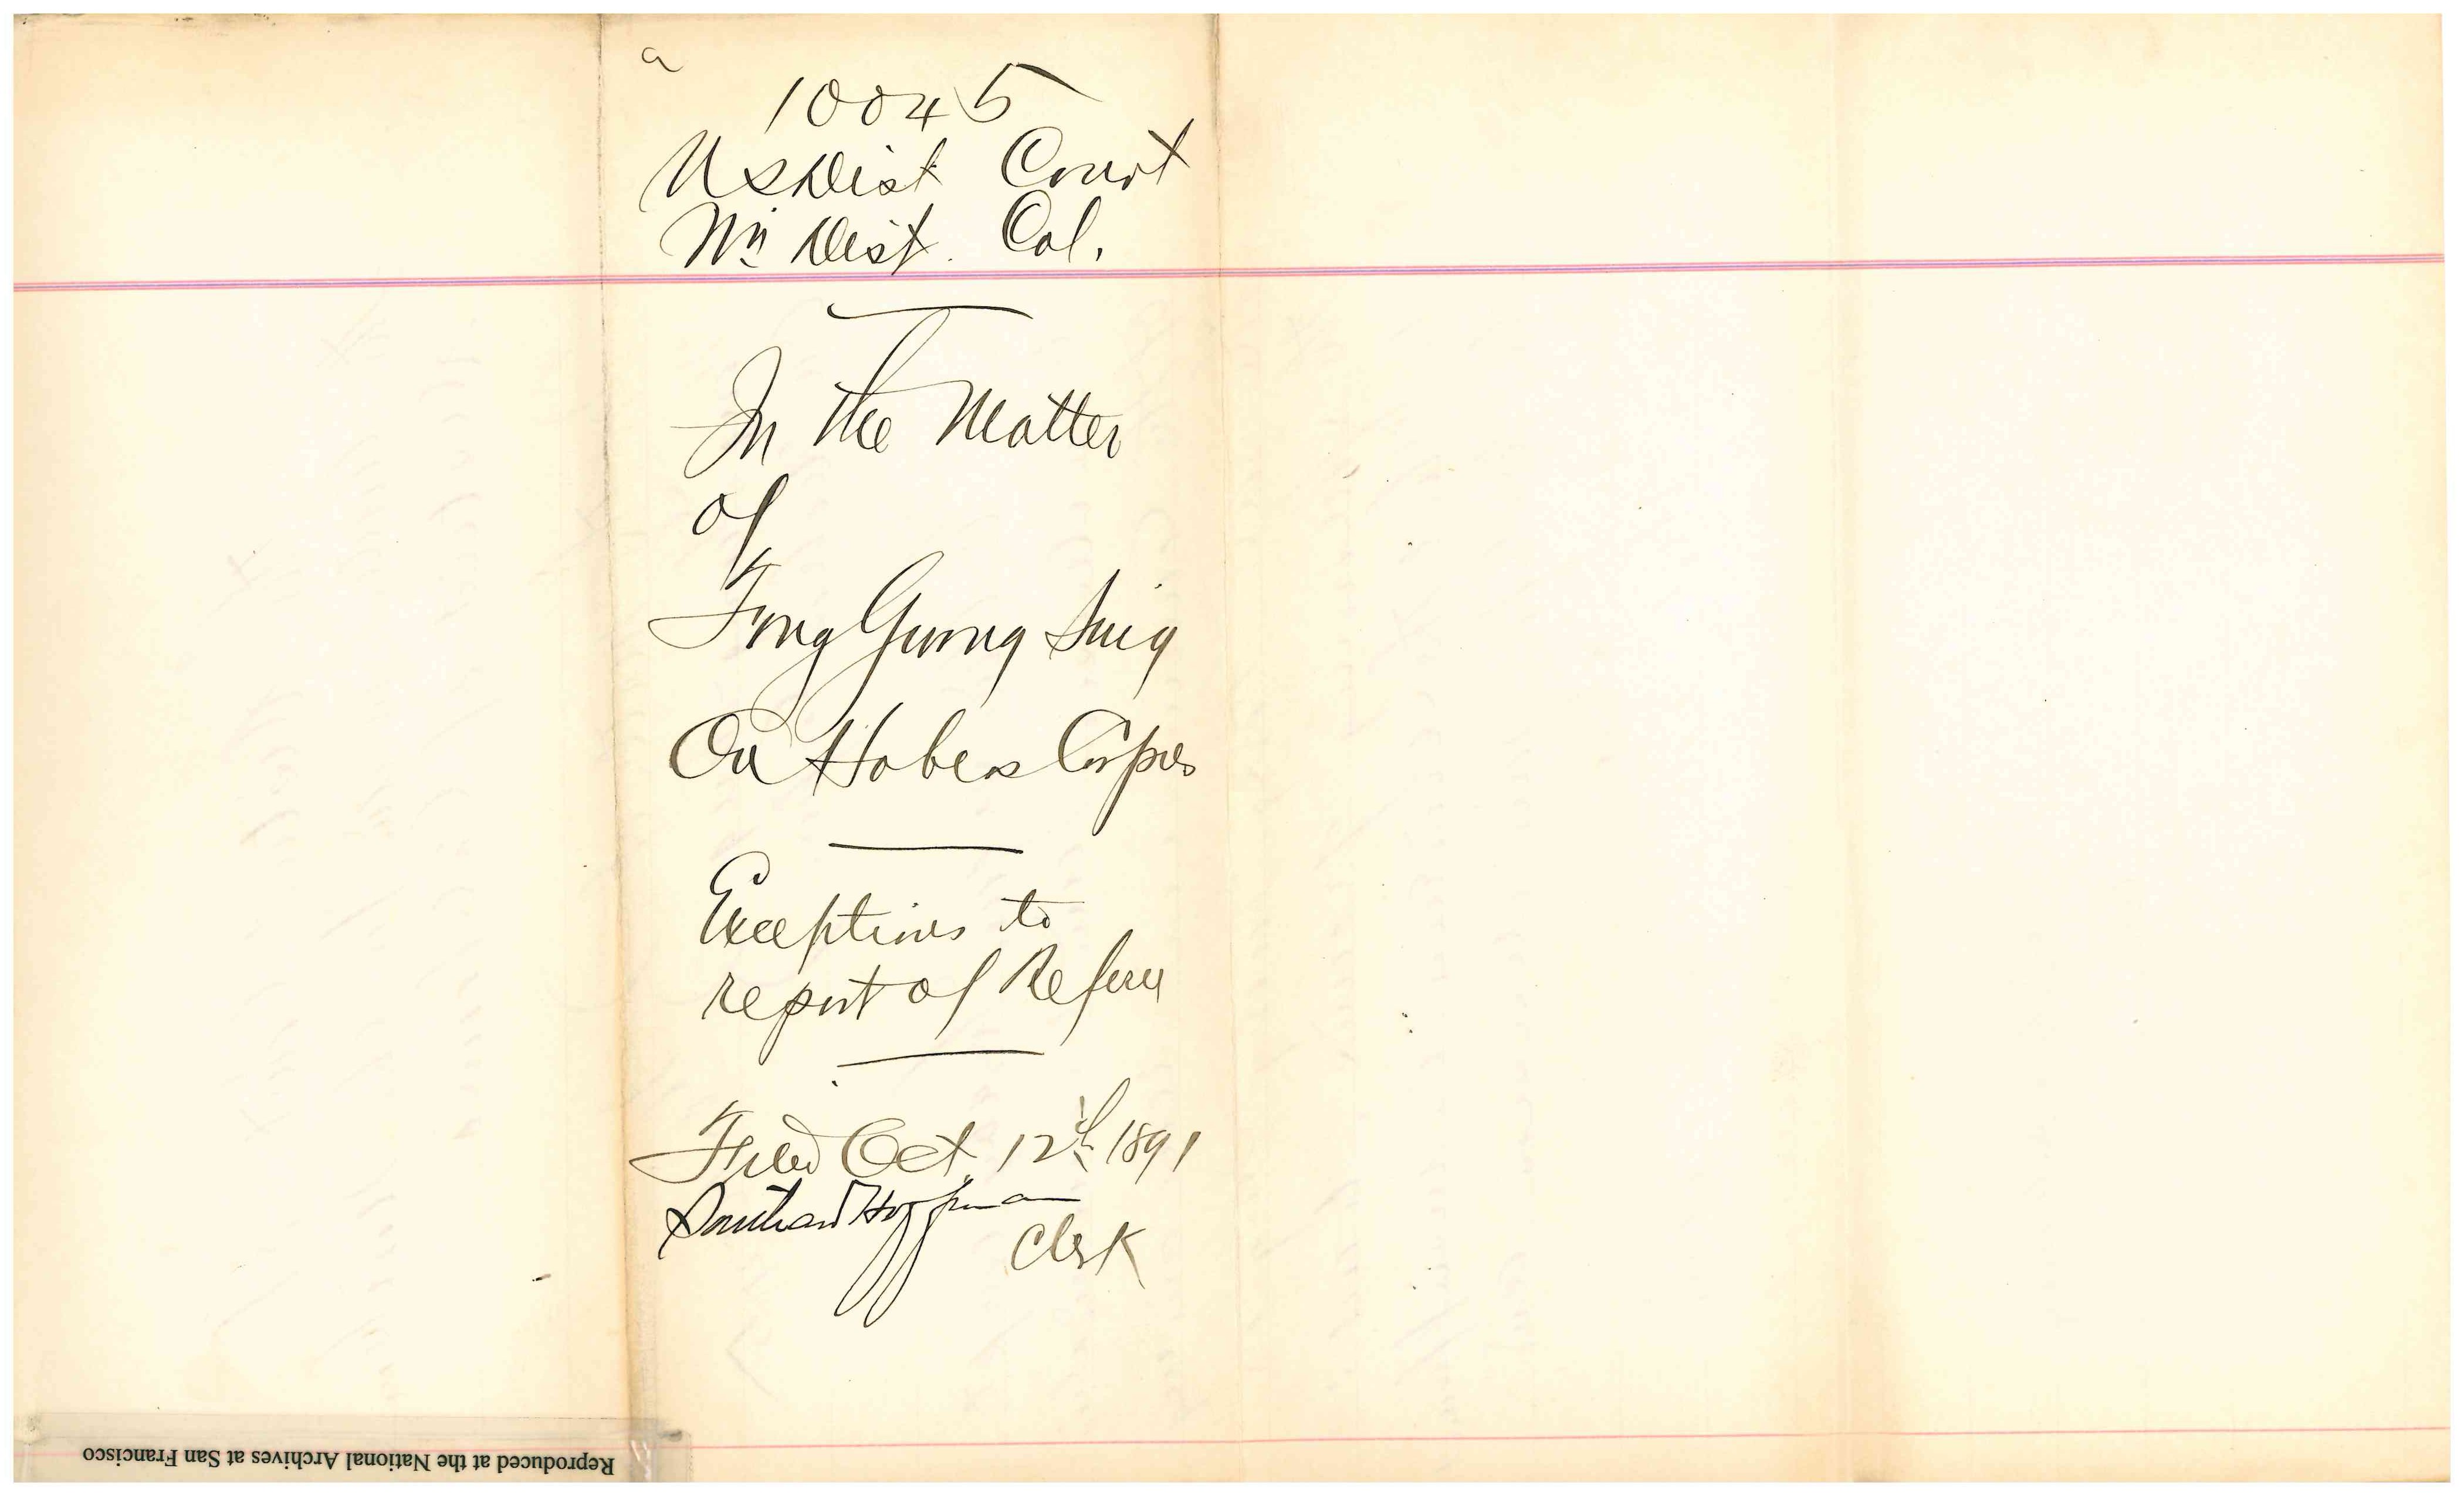 10045
US Dist Court
Nn Dist. Cal.
In the Matter
of
Fong Gung Suig
On Habeas Corpus
Exceptions to
report of Referee
Filed Oct. 12th 1891
Southard Hoffman
Clerk
Reproduced at the National Archives at San Francisco